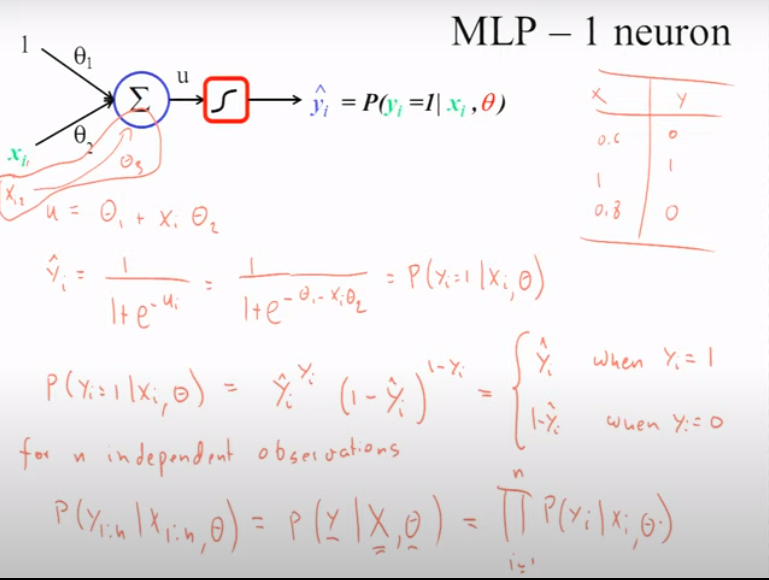 MLP – 1 neuron
1 θ₁
u
Σ ŷᵢ = P(yᵢ =1| xᵢ , θ)
θ₂
xᵢ₁ θ₃
xᵢ₂
u = θ₁ + xᵢ θ₂
X Y
0.6 0
1 1
0.8 0
ŷᵢ = 1/(1+e^(-uᵢ)) = 1/(1+e^(-θ₁-xᵢθ₂)) = P(yᵢ=1|xᵢ,θ)
P(yᵢ=1|xᵢ,θ) = ŷᵢ^(yᵢ) (1-ŷᵢ)^(1-yᵢ) = { ŷᵢ when yᵢ=1
1-ŷᵢ when yᵢ=0
for n independent observations
P(y₁:ₙ|x₁:ₙ,θ) = P(y|X,θ) = ∏ᵢ₌₁ⁿ P(yᵢ|xᵢ,θ)